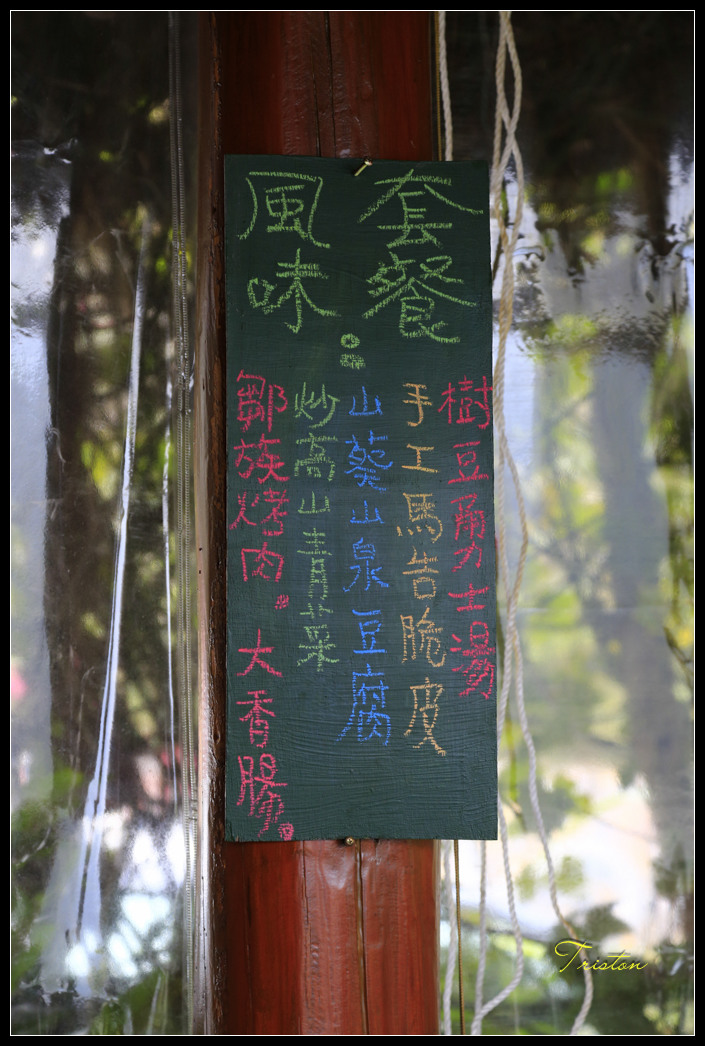 風味
套餐：
樹豆勇士湯
手工馬告脆皮
山葵山泉豆腐
炒高山青菜
鄒族烤肉。大香腸。
Triston